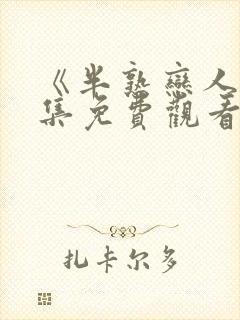 《半熟戀人
集免費觀看
扎卡尔多